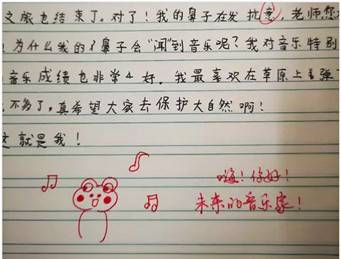 文旅也结束了。对了！我的鼻子在发 老师您
！为什么我的鼻子会“闻”到音乐呢？我对音乐特别
音乐成绩也非常好。我最喜欢在草原上
不多了，真希望大家去保护大自然啊！
这就是我！
嗨！你好！
未来的音乐家！